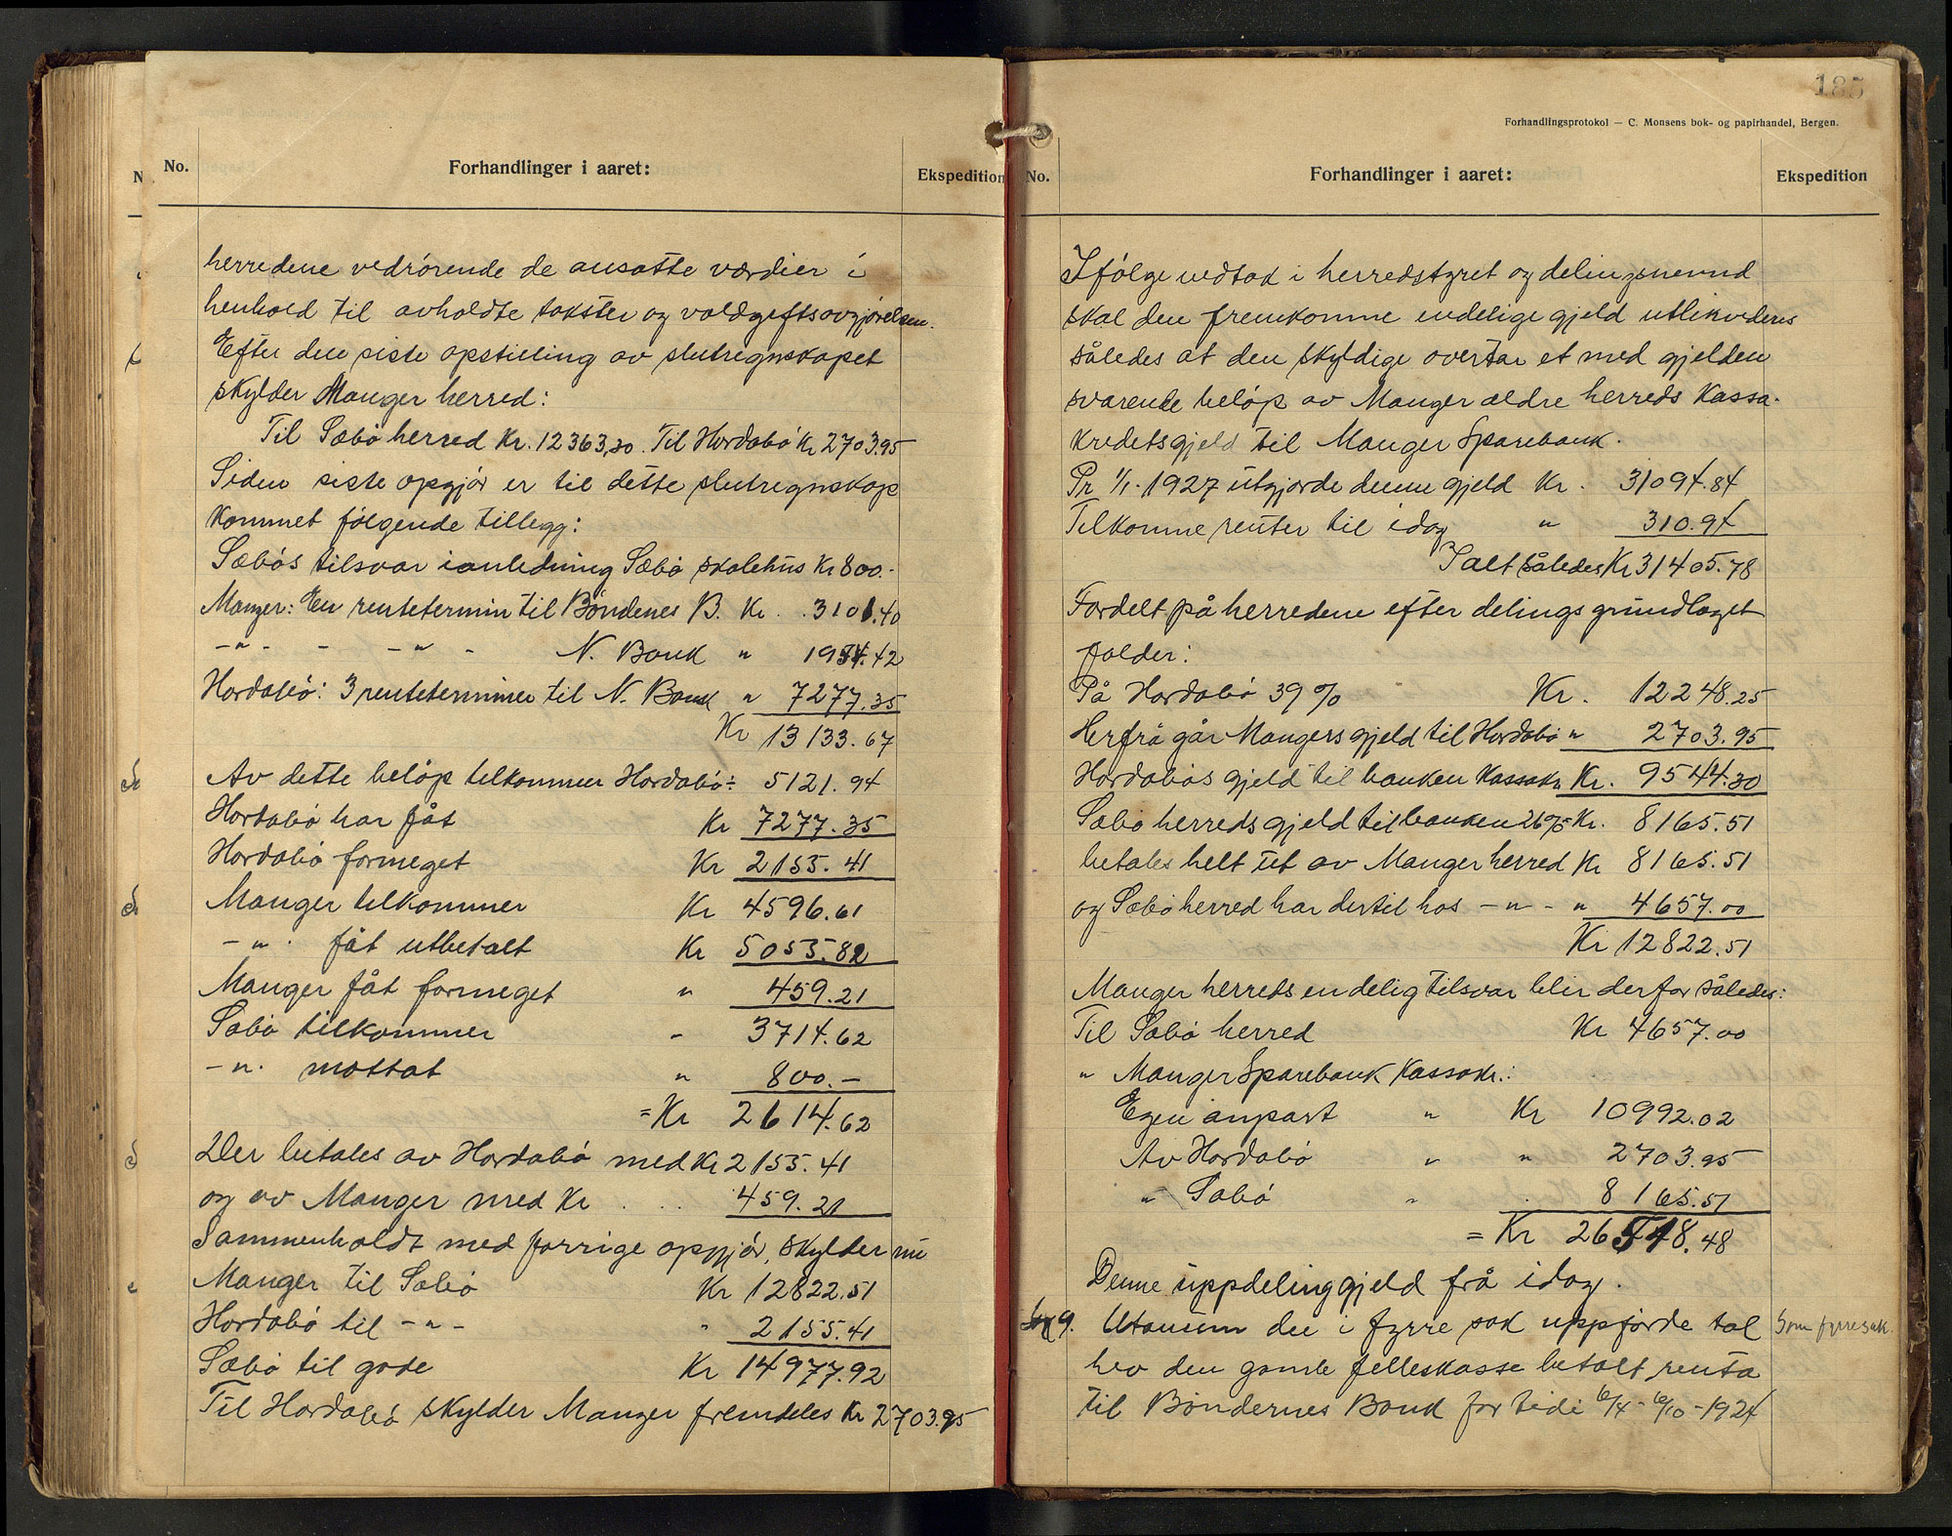 No.
Forhandlinger i aaret:
Ekspedition
herredene vedrørende de ansatte værdier i
henhold til avholdte takster og voldgiftsavgjørelsen.
Efter den siste opstilling av slutregnskapet
skylder Manger herred:
Til Sæbö herred Kr. 12363,30. Til Hordabö Kr 2703.95
Siden siste opgjör er til dette slutregnskap
kommet fölgende tillegg:
Sæbös tilsvar ianledning Sæbö skolehus Kr 800.-
Manger: En rentetermin til Böndenes B. Kr. . 3101.40
-"- - -"- - N. Bank " 1954.42
Hordabö: 3 renteterminer til N. Bank " 7277.35
Kr 13133.67
Av dette belöp tilkommer Hordabö: 5121.94
Hordabö har fåt Kr 7277.35
Hordabö formeget Kr 2155.41
Manger tilkommer Kr 4596.61
-"- fåt utbetalt Kr 5055.82
Manger fåt formeget " 459.21
Sæbö tilkommer - 3714.62
-"- mottat " 800.-
= Kr 2614.62
Der betales av Hordabö med Kr 2155.41
og av Manger med Kr . . . 459.21
Sammenholdt med forrige opgjör, skylder nu
Manger til Sæbö Kr 12822.51
Hordabö til -"- " 2155.41
Sæbö til gode Kr 14977.92
Til Hordabö skylder Manger fremdeles Kr 2703.95
185
Forhandlingsprotokol — C. Monsens bok- og papirhandel, Bergen.
No.
Forhandlinger i aaret:
Ekspedition
Ifölge vedtak i herredstyret og delingsnevnd
skal den fremkomne endelige gjeld utlikvideres
således at den skyldige overtar et med gjelden
svarende belöp av Manger ældre herreds Kassa-
kreditsgjeld til Manger Sparebank.
Pr 1/1-1927 utgjorde denne gjeld Kr. 31094.84
Tilkomne renter til idag " 310.94
Ialt således Kr 31405.78
Fordelt på herredene efter delingsgrundlaget
falder:
På Hordabö 39 % Kr. 12248.25
Herfrå går Mangers gjeld til Hordabö " 2703.95
Hordabös gjeld til banken Kassakr. Kr. 9544.30
Sæbö herreds gjeld til banken 26% Kr. 8165.51
betales helt ut av Manger herred Kr 8165.51
og Sæbö herred har dertil hos -"- " 4657.00
Kr 12822.51
Manger herreds endelig tilsvar blir derfor således:
Til Sæbö herred Kr 4657.00
" Manger Sparebank Kassakr.:
Egen anpart " Kr 10992.02
Av Hordabö " " 2703.95
" Sæbö " . 8165.51
= Kr 26518.48
Denne uppdeling gjeld frå idag.
9. Utanum dei i fyrre sak uppförde tal
hev den gamle felleskasse betalt renta
til Böndernes Bank for tidi 6/4-6/10-1924
Som fyrre sak.